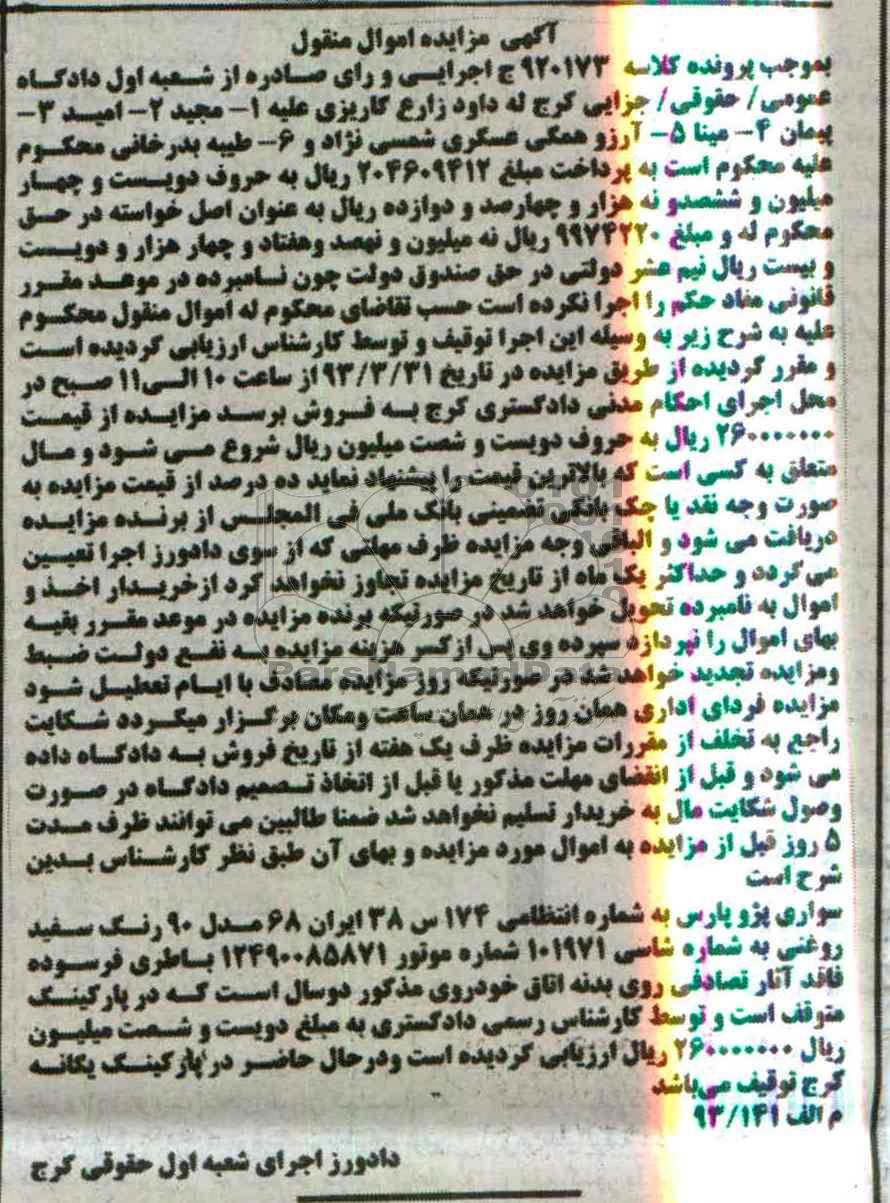 آگهی مزایده اموال منقول
بموجب پرونده کلاسه ۹۲۰۱۷۳ ج اجرایی و رای صادره از شعبه اول دادگاه
عمومی/ حقوقی/ جزایی کرج له داود زارع کاریزی علیه ۱- مجید ۲- امید ۳-
پیمان ۴- مینا ۵- آرزو همگی عسکری شمسی نژاد و ۶- طیبه بدرخانی محکوم
علیه محکوم است به پرداخت مبلغ ۲۰۴۶۰۹۴۱۲ ریال به حروف دویست و چهار
میلیون و ششصدو نه هزار و چهارصد و دوازده ریال به عنوان اصل خواسته در حق
محکوم له و مبلغ ۹۹۷۴۲۲۰ ریال نه میلیون و نهصد وهفتاد و چهار هزار و دویست
و بیست ریال نیم عشر دولتی در حق صندوق دولت چون نامبرده در موعد مقرر
قانونی مفاد حکم را اجرا نکرده است حسب تقاضای محکوم له اموال منقول محکوم
علیه به شرح زیر به وسیله این اجرا توقیف و توسط کارشناس ارزیابی گردیده است
و مقرر گردیده از طریق مزایده در تاریخ ۹۳/۳/۳۱ از ساعت ۱۰ الی۱۱ صبح در
محل اجرای احکام مدنی دادگستری کرج به فروش برسد مزایده از قیمت
۲۶۰۰۰۰۰۰۰ ریال به حروف دویست و شصت میلیون ریال شروع می شود و مال
متعلق به کسی است که بالاترین قیمت را پیشنهاد نماید ده درصد از قیمت مزایده به
صورت وجه نقد یا چک بانکی تضمینی بانک ملی فی المجلس از برنده مزایده
دریافت می شود و الباقی وجه مزایده ظرف مهلتی که از سوی دادورز اجرا تعیین
می گردد و حداکثر یک ماه از تاریخ مزایده تجاوز نخواهد کرد ازخریدار اخذ و
اموال به نامبرده تحویل خواهد شد در صورتیکه برنده مزایده در موعد مقرر بقیه
بهای اموال را نپردازد سپرده وی پس ازکسر هزینه مزایده به نفع دولت ضبط
ومزایده تجدید خواهدشد در صورتیکه روز مزایده مصادف با ایام تعطیل شود
مزایده فردای اداری همان روز در همان ساعت ومکان برگزار میگردد شکایت
راجع به تخلف از مقررات مزایده ظرف یک هفته از تاریخ فروش به دادگاه داده
می شود و قبل از انقضای مهلت مذکور یا قبل از اتخاذ تصمیم دادگاه در صورت
وصول شکایت مال به خریدار تسلیم نخواهد شد ضمنا طالبین می توانند ظرف مدت
۵ روز قبل از مزایده به اموال مورد مزایده و بهای آن طبق نظر کارشناس بدین
شرح است
سواری پژو پارس به شماره انتظامی ۱۷۴ س ۳۸ ایران ۶۸ مدل ۹۰ رنگ سفید
روغنی به شماره شاسی ۱۰۱۹۷۱ شماره موتور ۱۲۴۹۰۰۸۵۸۷۱ باطری فرسوده
فاقد آثار تصادفی روی بدنه اتاق خودروی مذکور دوسال است که در پارکینگ
متوقف است و توسط کارشناس رسمی دادگستری به مبلغ دویست و شصت میلیون
ریال ۲۶۰۰۰۰۰۰۰ ریال ارزیابی گردیده است ودرحال حاضر در پارکینگ یگانه
کرج توقیف می‌باشد
م الف ۹۳/۱۴۱
دادورز اجرای شعبه اول حقوقی کرج
ParsNamadData